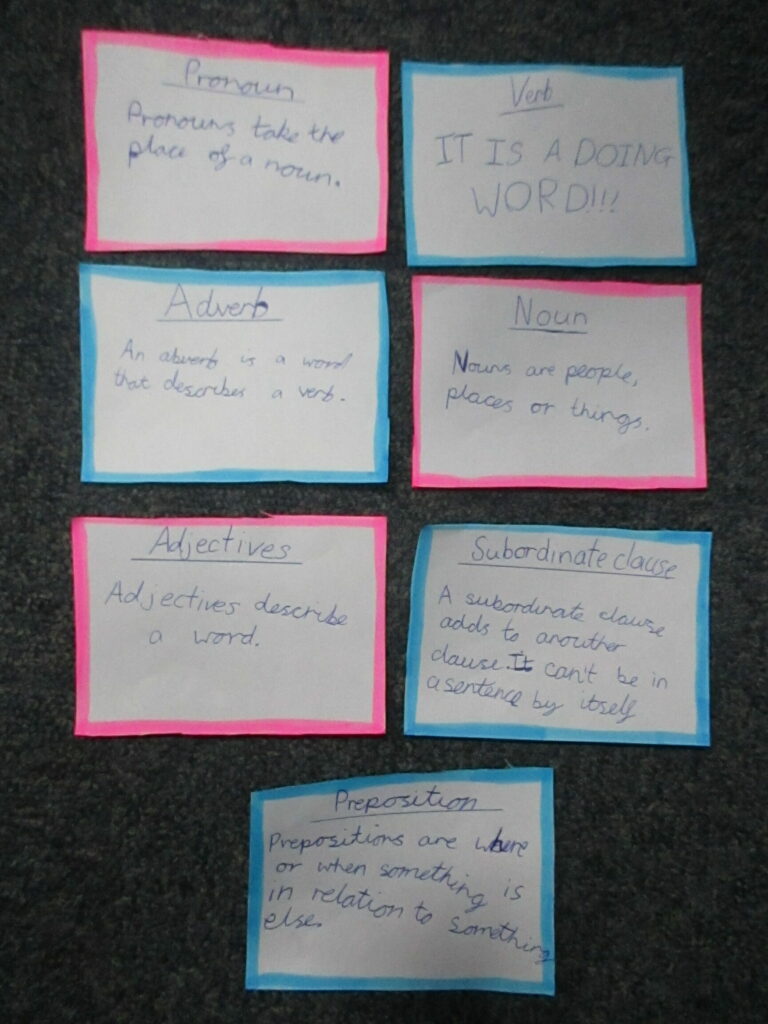 Pronoun
Pronouns take the
place of a noun.
Verb
IT IS A DOING
WORD!!!
Adverb
An abverb is a word
that describes a verb.
Noun
Nouns are people,
places or things.
Adjectives
Adjectives describe
a word.
Subordinate clause
A subordinate clause
adds to anouther
clause. It can't be in
a sentence by itself
Preposition
Prepositions are where
or when something is
in relation to something
else.